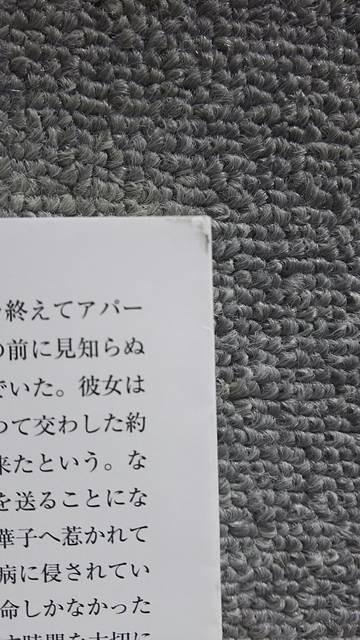 終えてアパー
の前に見知らぬ
でいた。彼女は
つて交わした約
来たという。な
を送ることにな
華子へ惹かれて
病に侵されてい
命しかなかった
時間を大切に